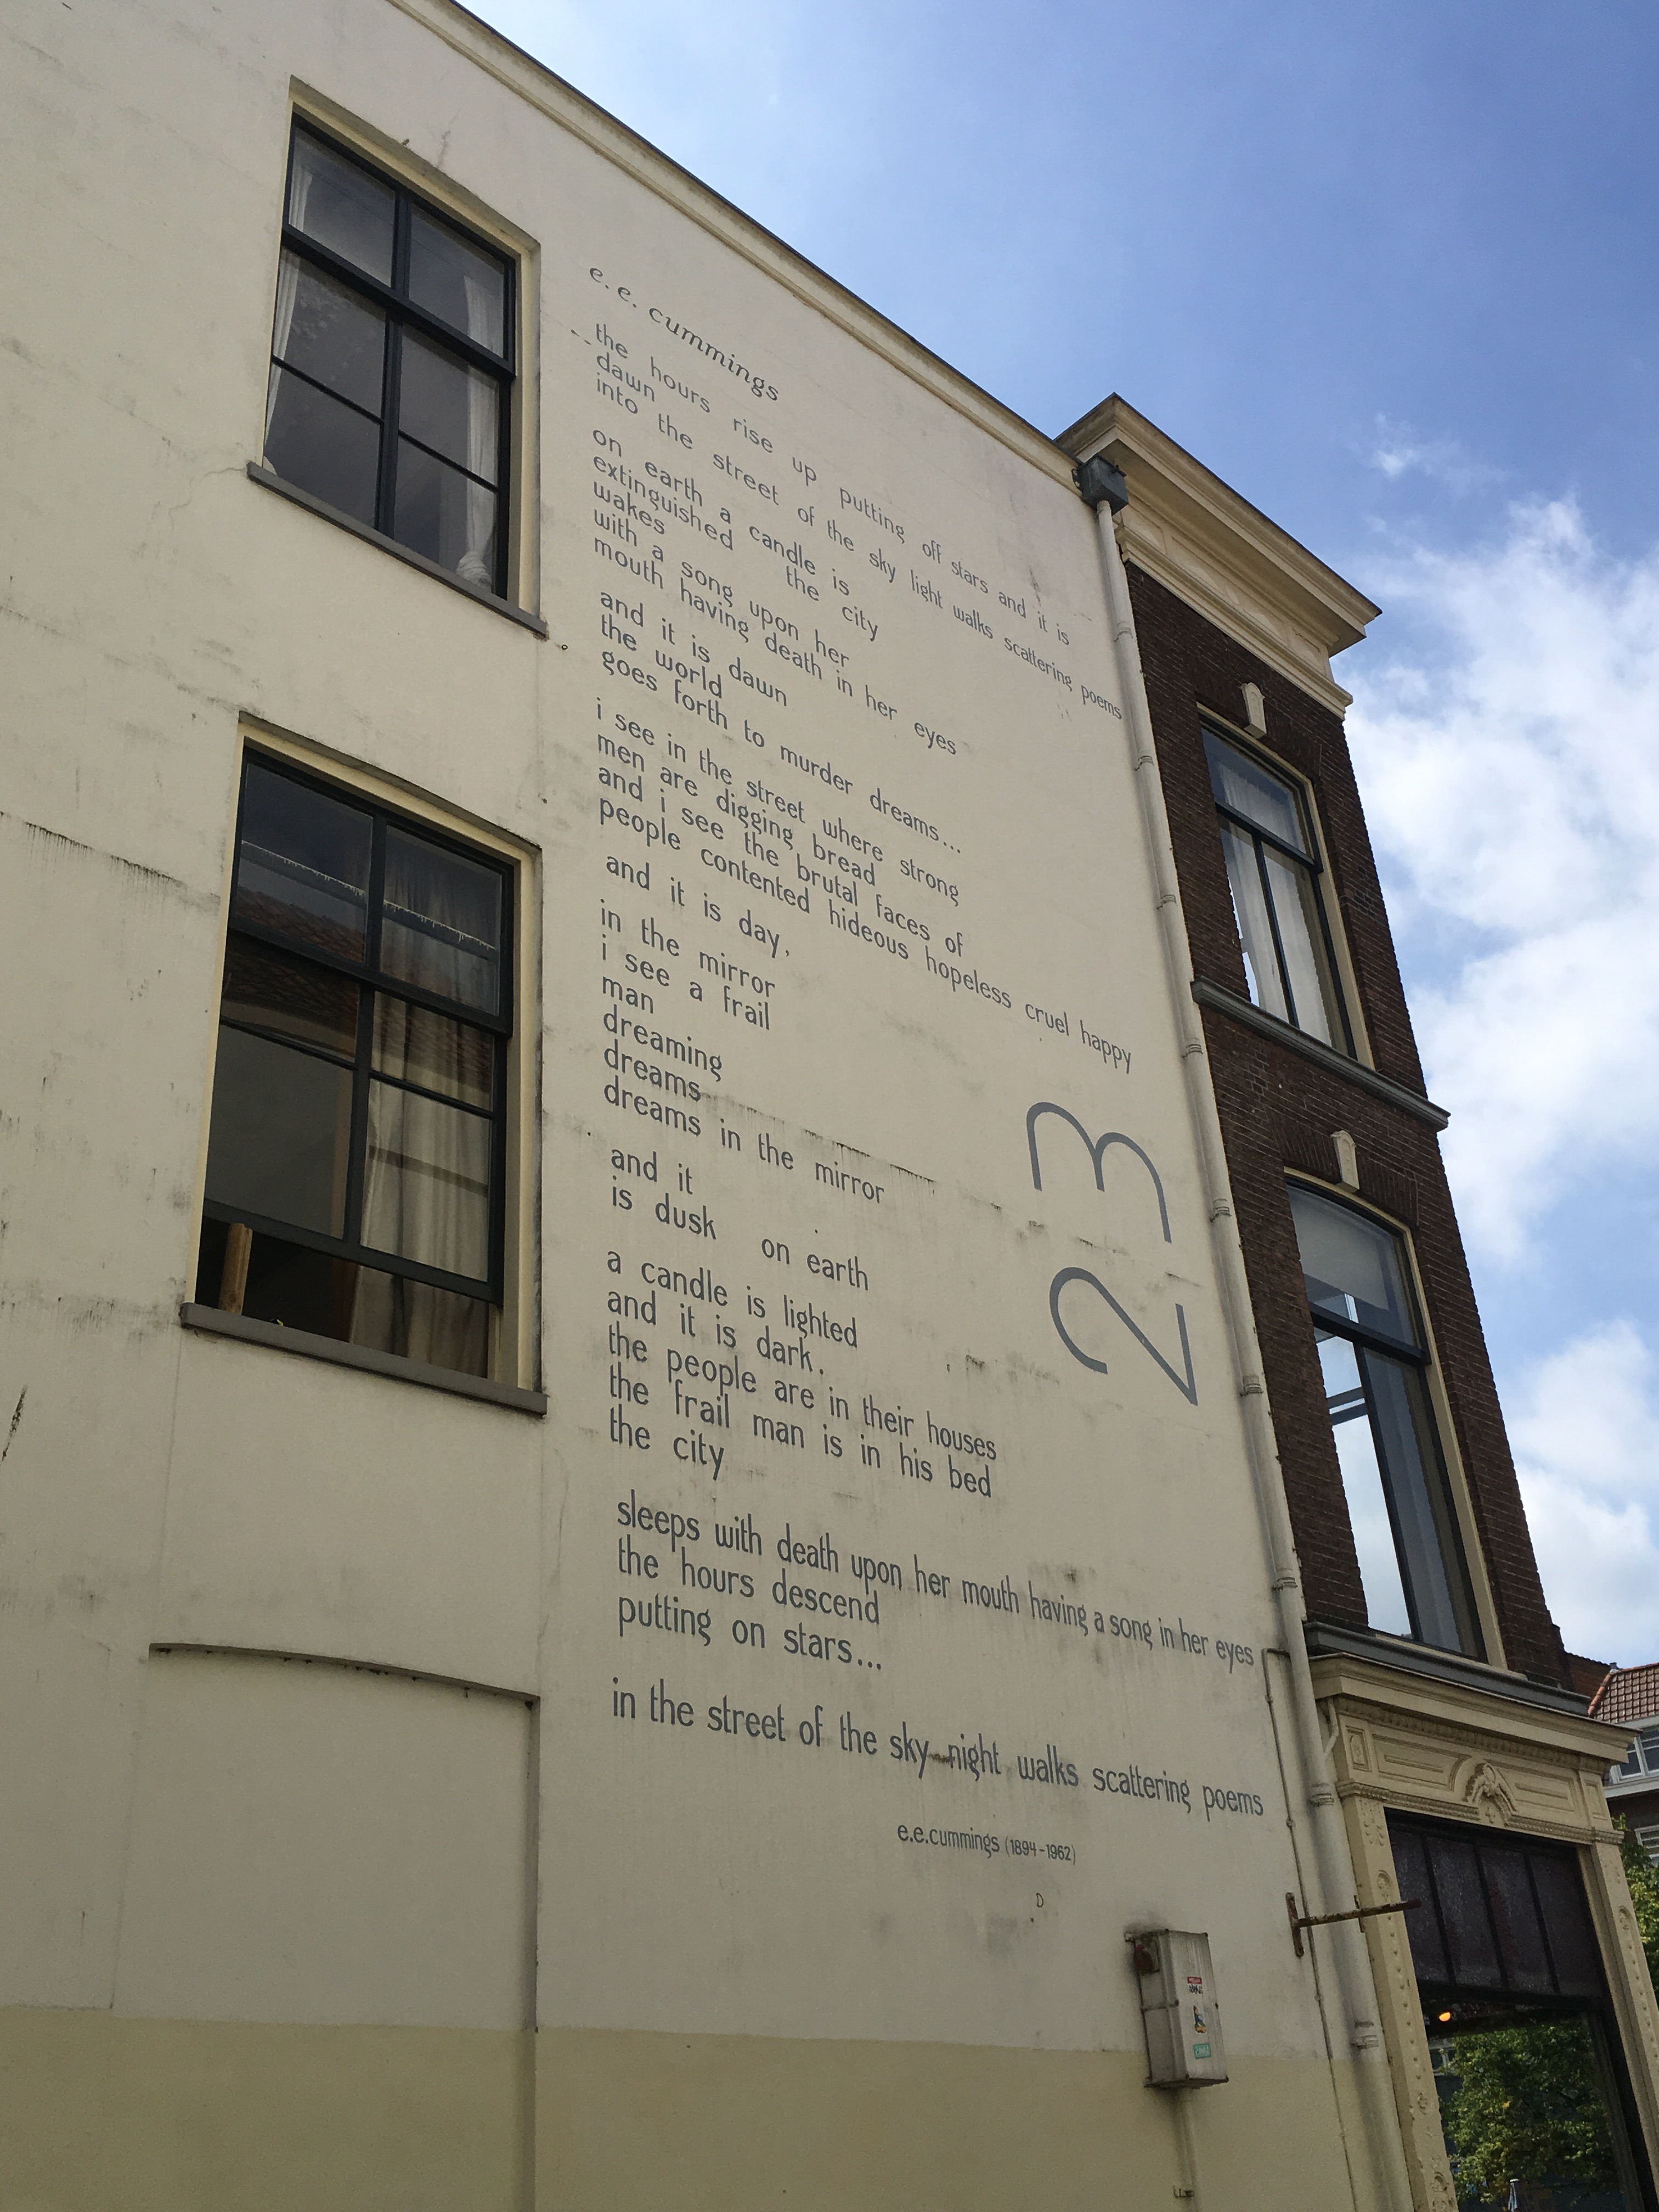 e. e. cummings
the hours rise up putting off stars and it is
dawn
into the street of the sky light walks scattering poems
on earth a candle is
extinguished the city
wakes
with a song upon her
mouth having death in her eyes
and it is dawn
the world
goes forth to murder dreams...
i see in the street where strong
men are digging bread
and i see the brutal faces of
people contented hideous hopeless cruel happy
and it is day,
in the mirror
i see a frail
man
dreaming
dreams
dreams in the mirror
and it
is dusk on earth
a candle is lighted
and it is dark.
the people are in their houses
the frail man is in his bed
the city
sleeps with death upon her mouth having a song in her eyes
the hours descend
putting on stars...
in the street of the sky night walks scattering poems
e.e.cummings (1894-1962)
23
D